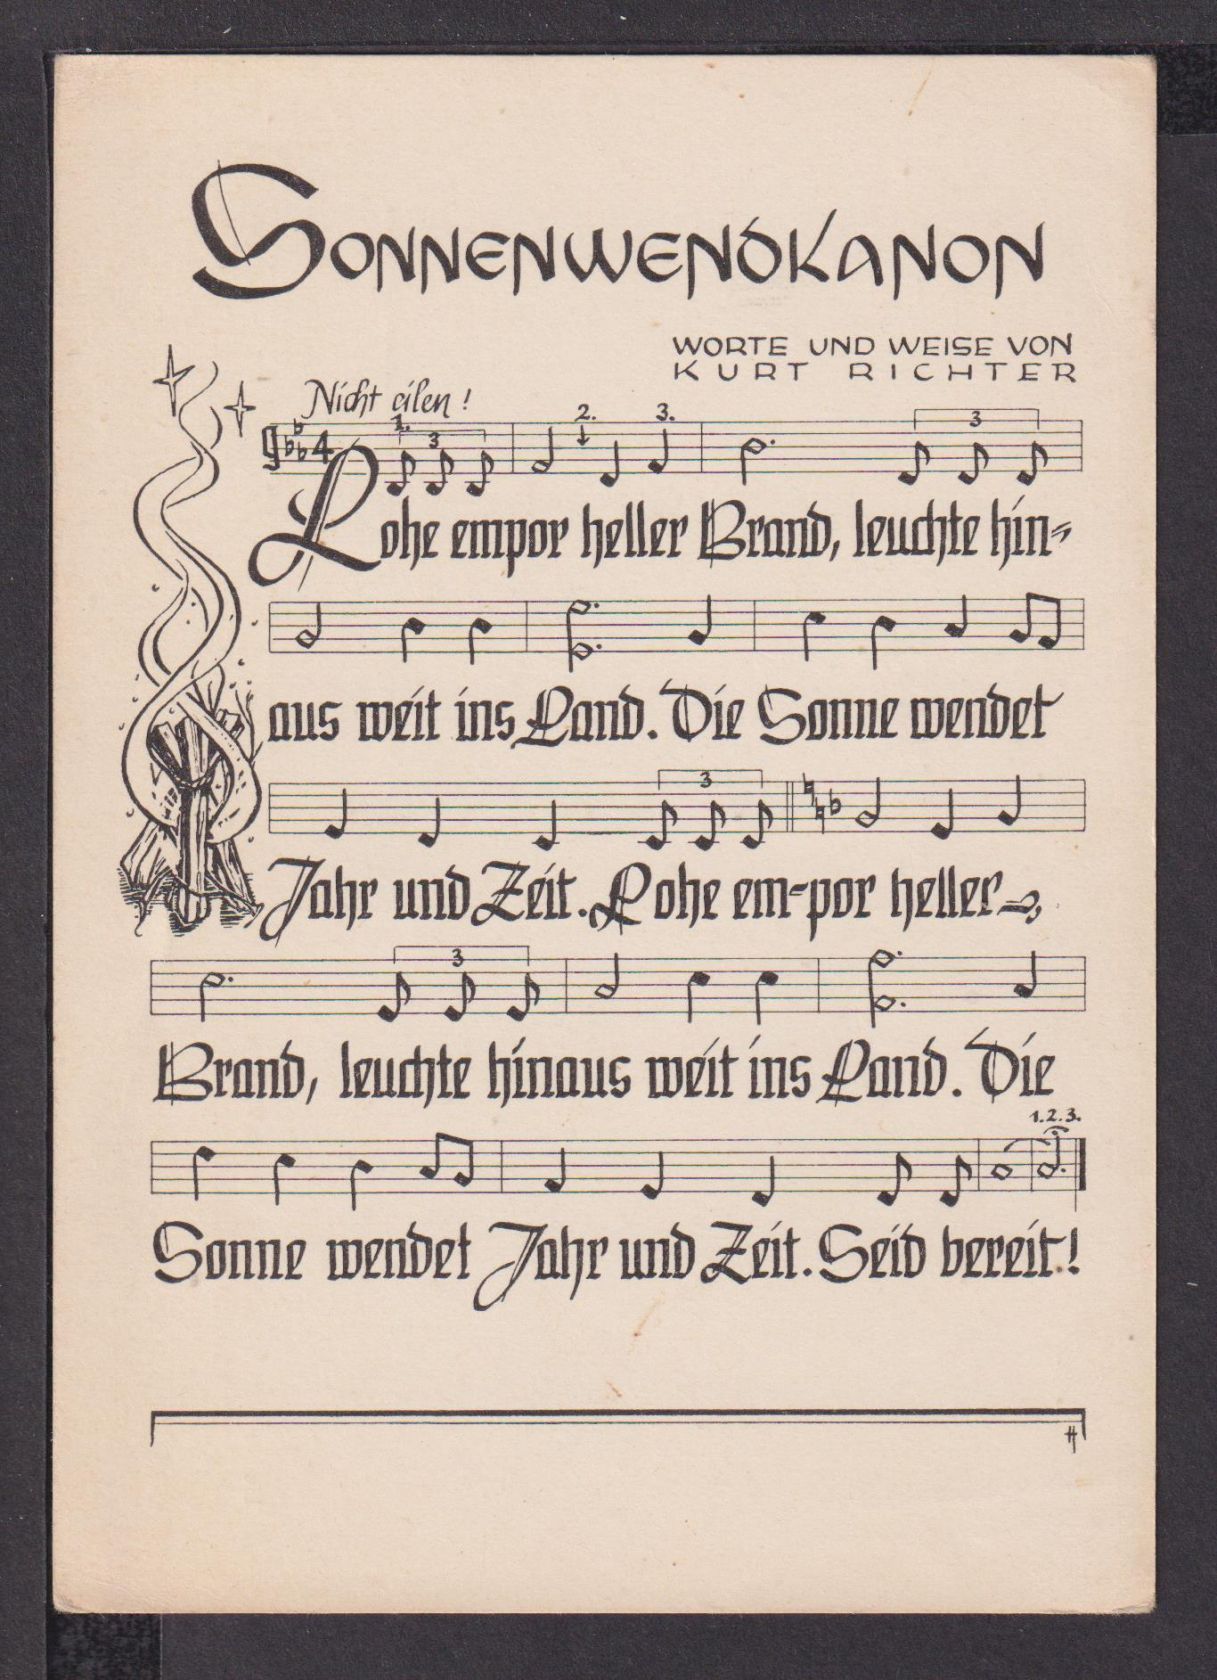 SONNENWENDKANON
WORTE UND WEISE VON
KURT RICHTER
Nicht eilen!
1. 3 2. 3. 3
4
Lohe empor heller Brand, leuchte hin=
aus weit ins Land. Die Sonne wendet
3
Jahr und Zeit. Lohe em=por heller
3
Brand, leuchte hinaus weit ins Land. Die
1.2.3.
Sonne wendet Jahr und Zeit. Seid bereit!